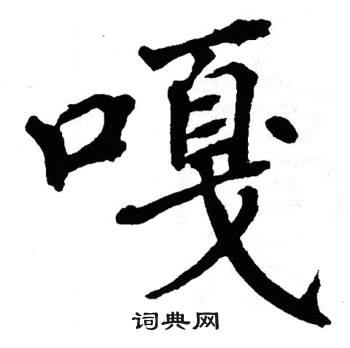 嘎
词典网